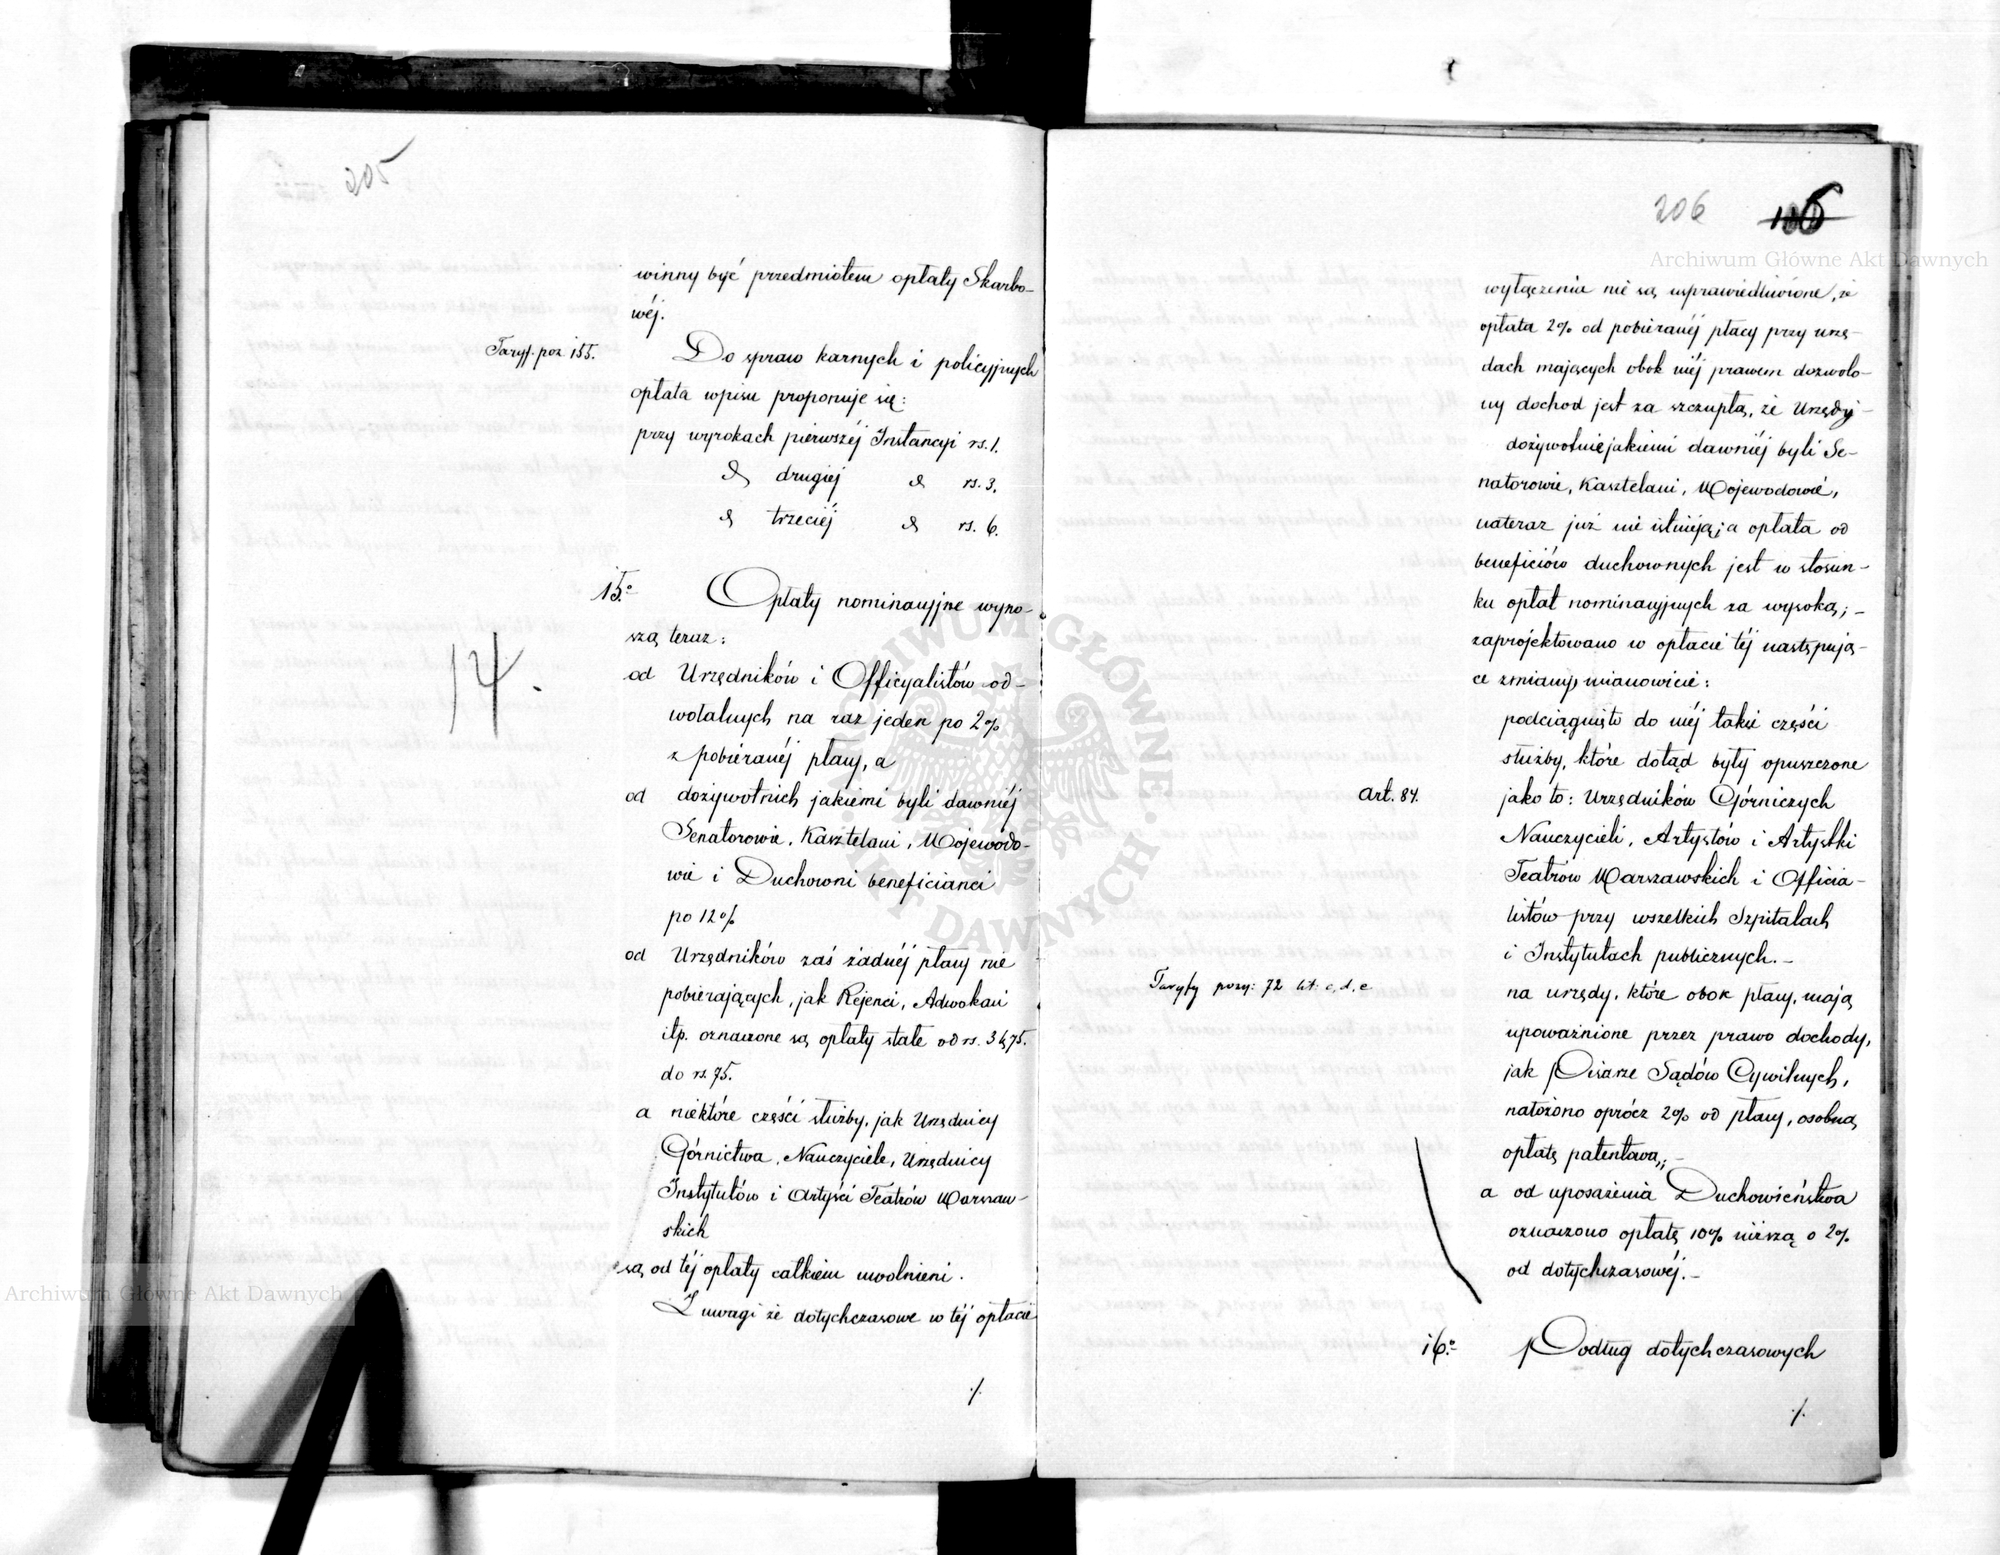 205
winny być przedmiotem opłaty Skarbo-
wéj.
Taryf. poz 155.
Do spraw karnych i policyjnych
opłata wpisu proponuje się:
przy wyrokach pierwszéj Instancyi rs. 1.
drugiéj rs. 3.
trzeciéj rs. 6.
15.° Opłaty nominacyjne wyno-
szą teraz:
14.
od Urzędników i Officyalistów od-
wołalnych na raz jeden po 2%
z pobiéranéj płacy, a
od dożywotnich jakiemi byli dawniéj
Senatorowie, Kasztelani, Wojewodo-
wie i Duchowni beneficianci
po 12%
od Urzędników zaś żadnéj płacy nie
pobierających, jak Rejenci, Adwokaci
itp. oznaczone są opłaty stałe od rs. 3 k. 75.
do rs. 75.
a niektóre części służby, jak Urzędnicy
Górnictwa, Nauczyciele, Urzędnicy
Instytutów i Artyści Teatrów Warszaw-
skich
są od téj opłaty całkiem uwolnieni.
Z uwagi że dotychczasowe w téj opłacie
./.
206
wyłączenia nie są usprawiedliwione, że
opłata 2% od pobieranéj płacy przy urzę-
dach mających obok niéj prawem dozwolo-
ny dochod jest za szczupłą, że Urzędy
dożywotnie jakiemi dawniéj byli Se-
natorowie, Kasztelani, Wojewodowie,
nateraz już nie istnieją; a opłata od
beneficiów duchownych jest w stosun-
ku opłat nominacyjnych za wysoką; -
zaprojektowano w opłacie téj następują-
ce zmiany, mianowicie:
podciągnięto do niéj takie części
służby, które dotąd były opuszczone
Art. 84.
jako to: Urzędników Górniczych
Nauczycieli, Artystów i Artystki
Teatrów Warszawskich i Officia-
listów przy wszelkich Szpitalach
i Instytutach publicznych. -
Taryfy pozy: 72 lit: c, d, e
na urzędy, które obok płacy, mają
upoważnione przez prawo dochody,
jak Pisarze Sądów Cywilnych,
nałożono oprócz 2% od płacy, osobną
opłatę patentową; -
a od uposażenia Duchowieństwa
oznaczono opłatę 10% niższą o 2%
od dotychczasowéj. -
16.° Podług dotychczasowych
./.
Archiwum Główne Akt Dawnych
Archiwum Główne Akt Dawnych
ARCHIWUM GŁÓWNE AKT DAWNYCH